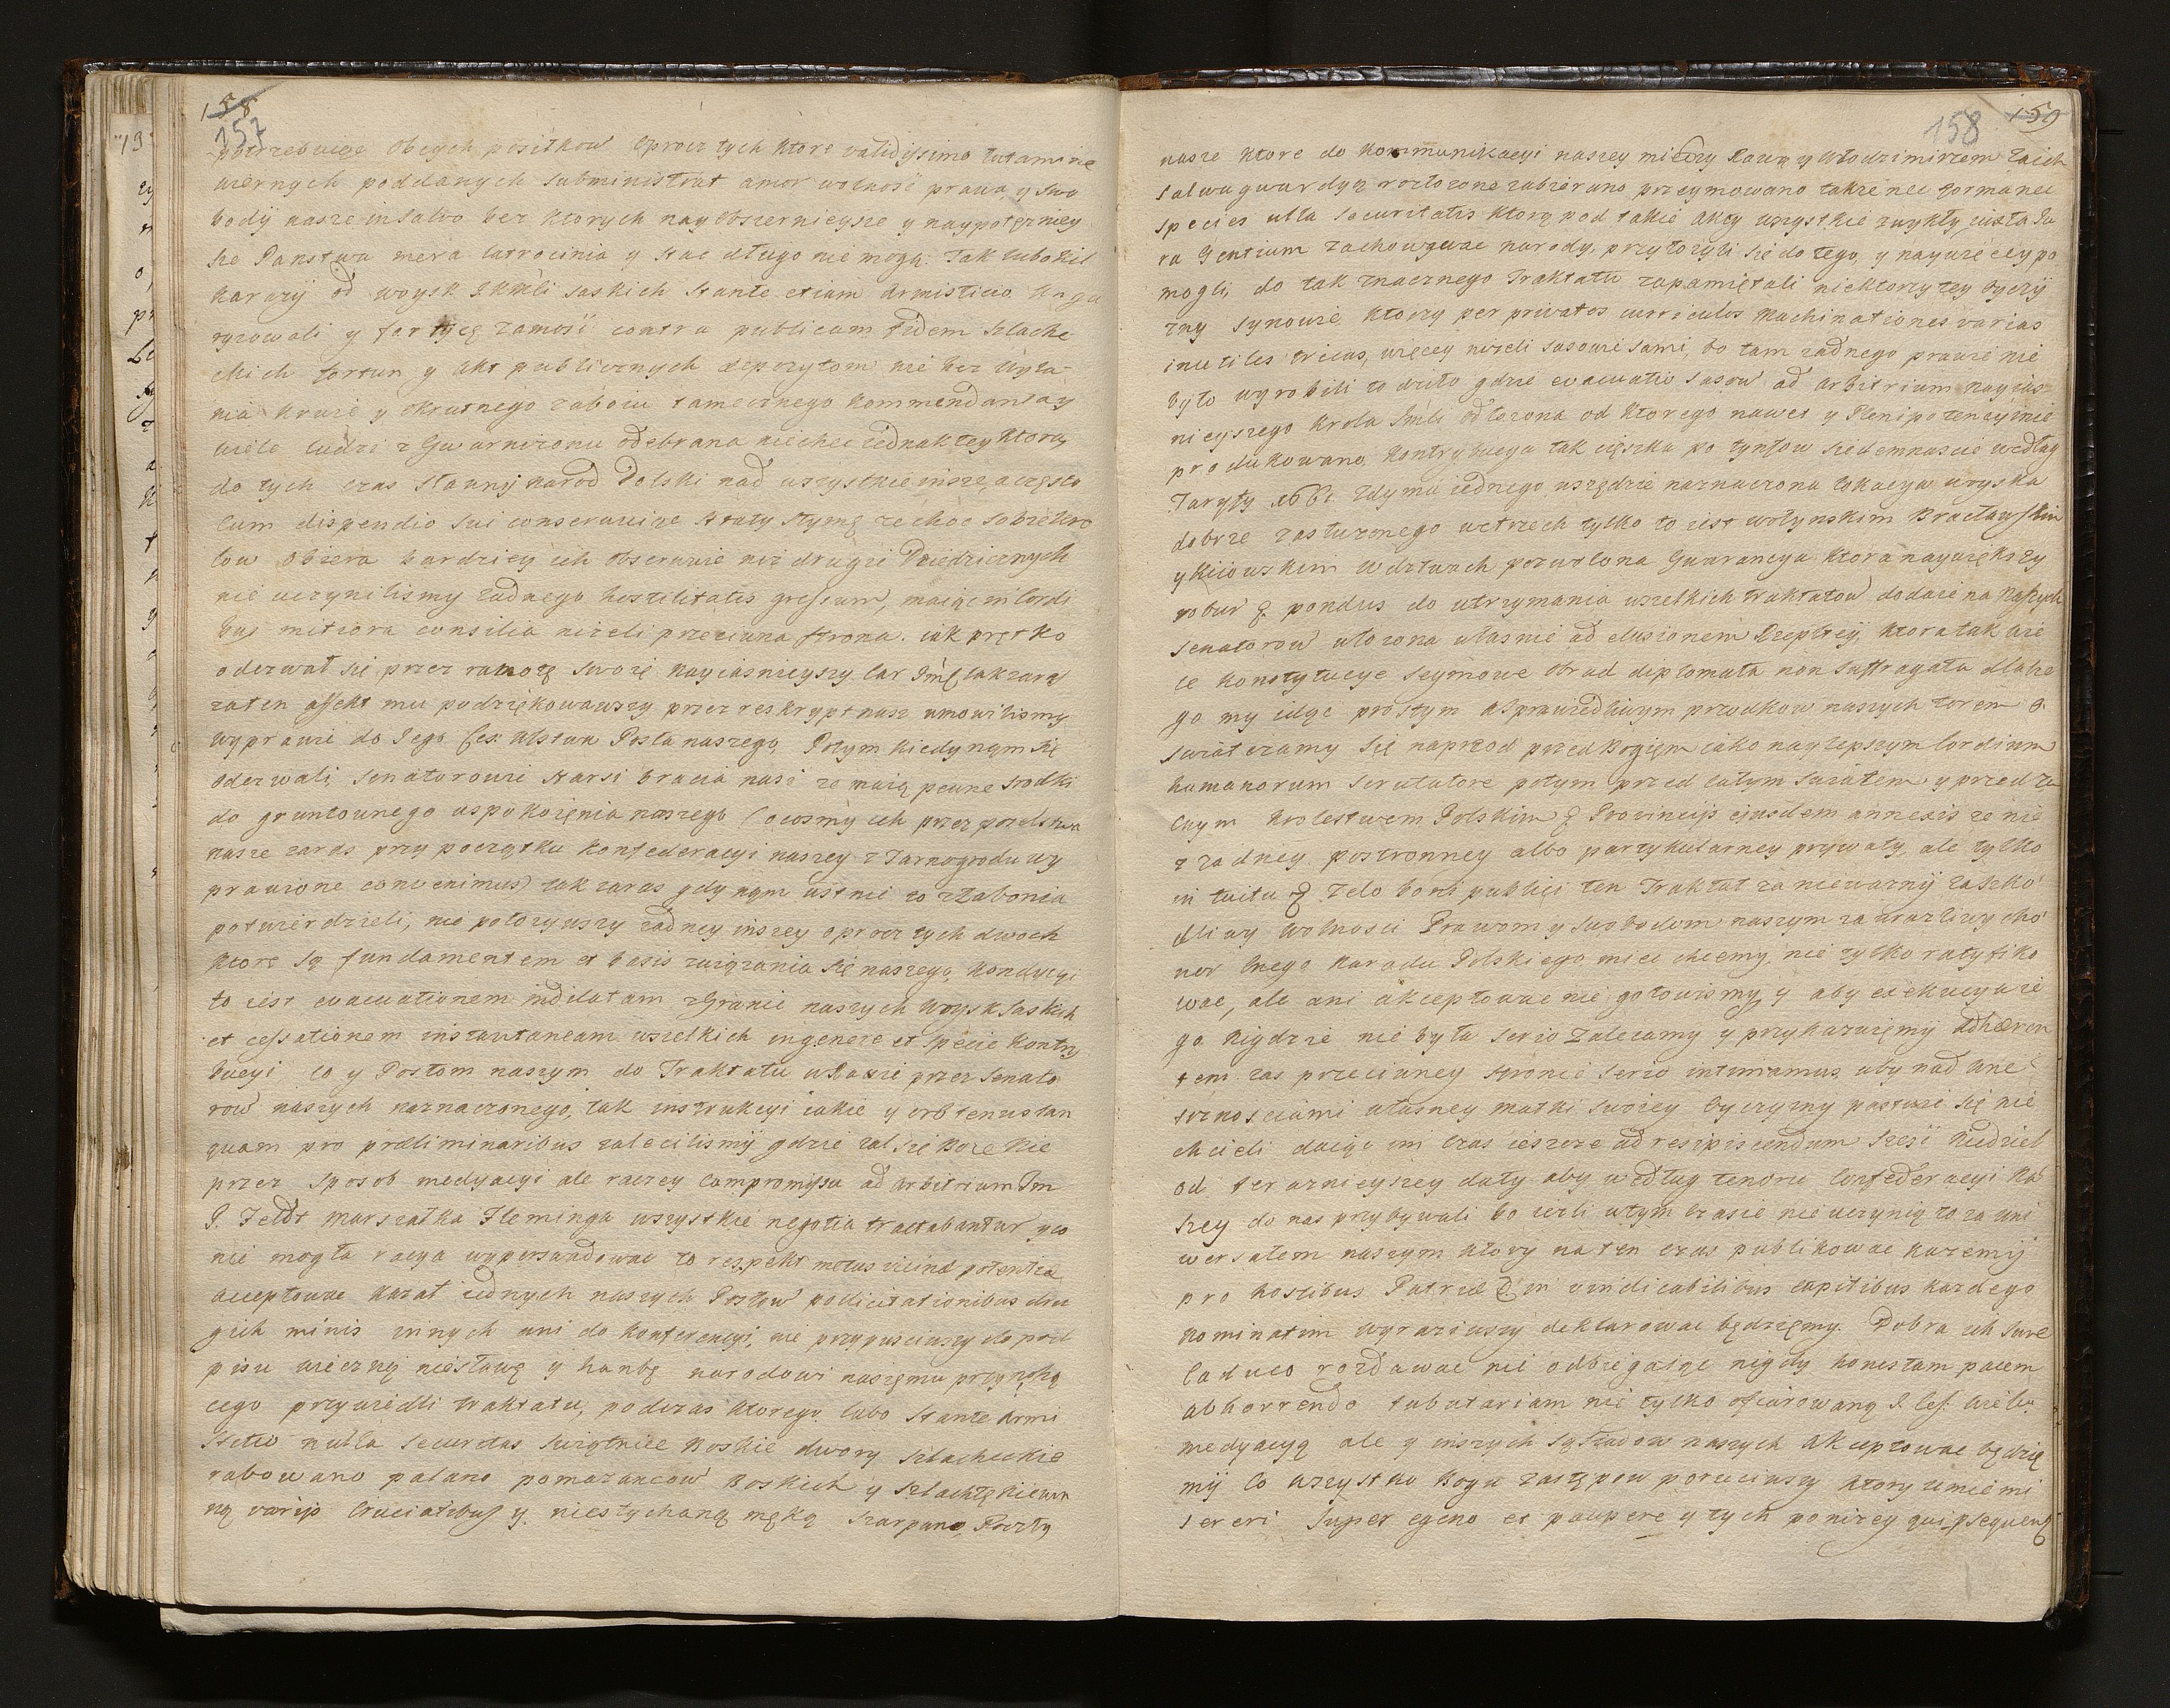 158
157
potrzebuiąc obcych posiłkow oprocz tych ktore validissimo tutamine
wiernych poddanych subministrat amor wolność prawa y swo
body nasze in salvo bez ktorych nayobszernieysze y naypotęzniey
sze Panstwa mera latrocinia y stac długo nie mogą. Tak lubo
od woysk saskich stante etiam Armistitio
y fortecę Zamość contra publicam fidem szlache
ckich fortun y akt publicznych depozytom nie bez
nia krwie y okrutnego zaboiu tamecznego kommendanta y
wiele ludzi z Gwarnizonu odebrana niechcę iednak tey ktorą
do tych czas sławny Narod Polski nad wszystkie insze, a często
cum dispendio sui conserwuiąc straty słymę ze choc sobie kro
low obiera bardziey ich obserwuie niz drugie Dziedzicznych
nie uczynilismy zadnego hostilitatis gressum, maiąc in cordi
bus mitiora consilia nizeli przeciwna strona. iak prętko
oderwał się przez swoię Nayiasnieyszy Car Jmść tak zaraz
za ten affekt mu podziękowawszy przez reskrypt nasz umowilismy
wyprawic do Jego Ces: Posła naszego, Potym kiedy nąm się
oderwali, Senatorowie starsi bracia nasi ze maią pewne srodki
do gruntownego uspokoięnia naszego (o cosmy ich przez poselstwa
nasze zaras przy początku konfederacyi naszey z Tarnogrodu wy
prawione convenimus) tak zaras gdy nąm ustnie to
potwierdzieli, nie połozywszy zadney inszey oprocz tych dwoch
ktore są fundamentem et basis związania się naszego, kondycyi
to iest evacuationem indilatam z Granic naszych woysk saskich
et cessationem instantaneam wszelkich in genere et specie kontry
bucyi co y Posłom naszym do Traktatu w Rawie przez Senato
row naszych naznaczonego, tak instrukcyi iakie y orbtenus tan
quam pro præliminaribus zalecilismy gdzie zal się Boze nie
przez sposob medyacyi ale raczey compromisu ad arbitrium Jm
P. Feldt Marszałka Fleminga wszystkie negotia tractabantur y co
nie mogła racya wyperswadowac to respekt metus potentiæ
acceptowac kazał iednych naszych Posłow pollicitationibus dru
gich minis innych ani do konferencyi, nie przypusciwszy do pod
pisu wieczną niesławę y hanbę narodowi naszęmu przynoszą
cego przywiedli traktatu, podczas ktorego lubo stante Armi
stitio nulla securitas swiątnice Boskie dwory szlacheckie
rabowano palano pomazancow Boskich y szlachtę niewin
ną variis cruciatibus y niesłychaną męką szarpano, Poczty
158 159
nasze ktore do kommunikacyi naszey miedzy Rawą y Włodzimirzem za ich
salwagwardyą rozłozone zabierano przeymowano takze nec formã nec
species ulla securitatis ktorą pod takie akty wszystkie zwykły iuxta Ju
ra Gentium zachowywac narody, przyłozyli się do tego, y naywięcey po
mogli, do tak znacznego Traktatu zapamiętali niektorzy tey oyczy
zny synowie ktorzy per privatos curriculos machinationes varias
inutiles tricas, więcey nizeli sasowie sami, bo tam zadnego prawie nie
było wyrobili to dzieło gdzie evacuatio sasow ad arbitrium nayias
nieyszego Krola Jmści odłozona od ktorego nawet y Plenipotencyi nie
produkowano, kontrybucya tak cięszka po tynfow siedemnascie według
Taryfy 1661. z dyma iednego wszędzie naznaczona lokacya woyska
dobrze zasłuzonego w trzech tylko to iest wołynskim Bracławskim
y Kiiowskim wdztwach pozwolona Gwarancya ktora naywiększy
robur & pondus do utrzymania wszelkich traktatow dodaie na naszych
senatorow włozona własnie ad elusionem Rzeplitey, ktora tak wie
le konstytucye seymowe obrad diplomata non suffragata dlatze
go my idąc prostym a sprawiedliwym przodkow naszych torem &
swiatczamy się naprzod przed Bogięm iako naylepszym cordium
humanorum scrutatore potym przed całym swiatem y przed
cnym krolestwem Polskim & Provinciis ejusdem annexis ze nie
z zadney postronney albo partykularney prywaty, ale tylko
in tuitu & zelo boni publici ten Traktat za niewazny zaszko
dliwy wolnosci Prawom y swobodom naszym za uraźliwy
nor cnego Narodu Polskiego miec chcemy, nie tylko ratyfiko
wac, ale ani akceptowac nie gotowismy y aby exekucya ie
go nigdzie nie była serio zalecamy y przykazuięmy Adhæren
tem zas przeciwney stronie serio intimamus, aby nad
wnętrznosciami własney matki swoiey oyczyzny pastwic się nie
chcieli daiąc im czas ieszcze ad resipiscendum szesć Niedziel
od terazniejszey daty aby według tenoru confederacyi na
szey do nas przybywali bo iezli w tym czasie nie uczynią to za uni
wersałem naszym ktory na ten czas publikowac kazemy
pro hostibus Patriæ & in vindicabilibus capitibus kazdego
nominatim wyraziwszy deklarowac będzięmy. Dobra ich jure
caduco rozdawac nie odbiegaiąc nigdy honestam pacem
abhorrendo tubutariam nie tylko ofiarowaną J. Ces. wielu
medyacyą ale y inszych sąsiadow naszych akceptowac będzię
my co wszystko Bogu zastępow poruciwszy ktory umie mi
sereri super egeno et paupere y tych ponizey qui psequenq